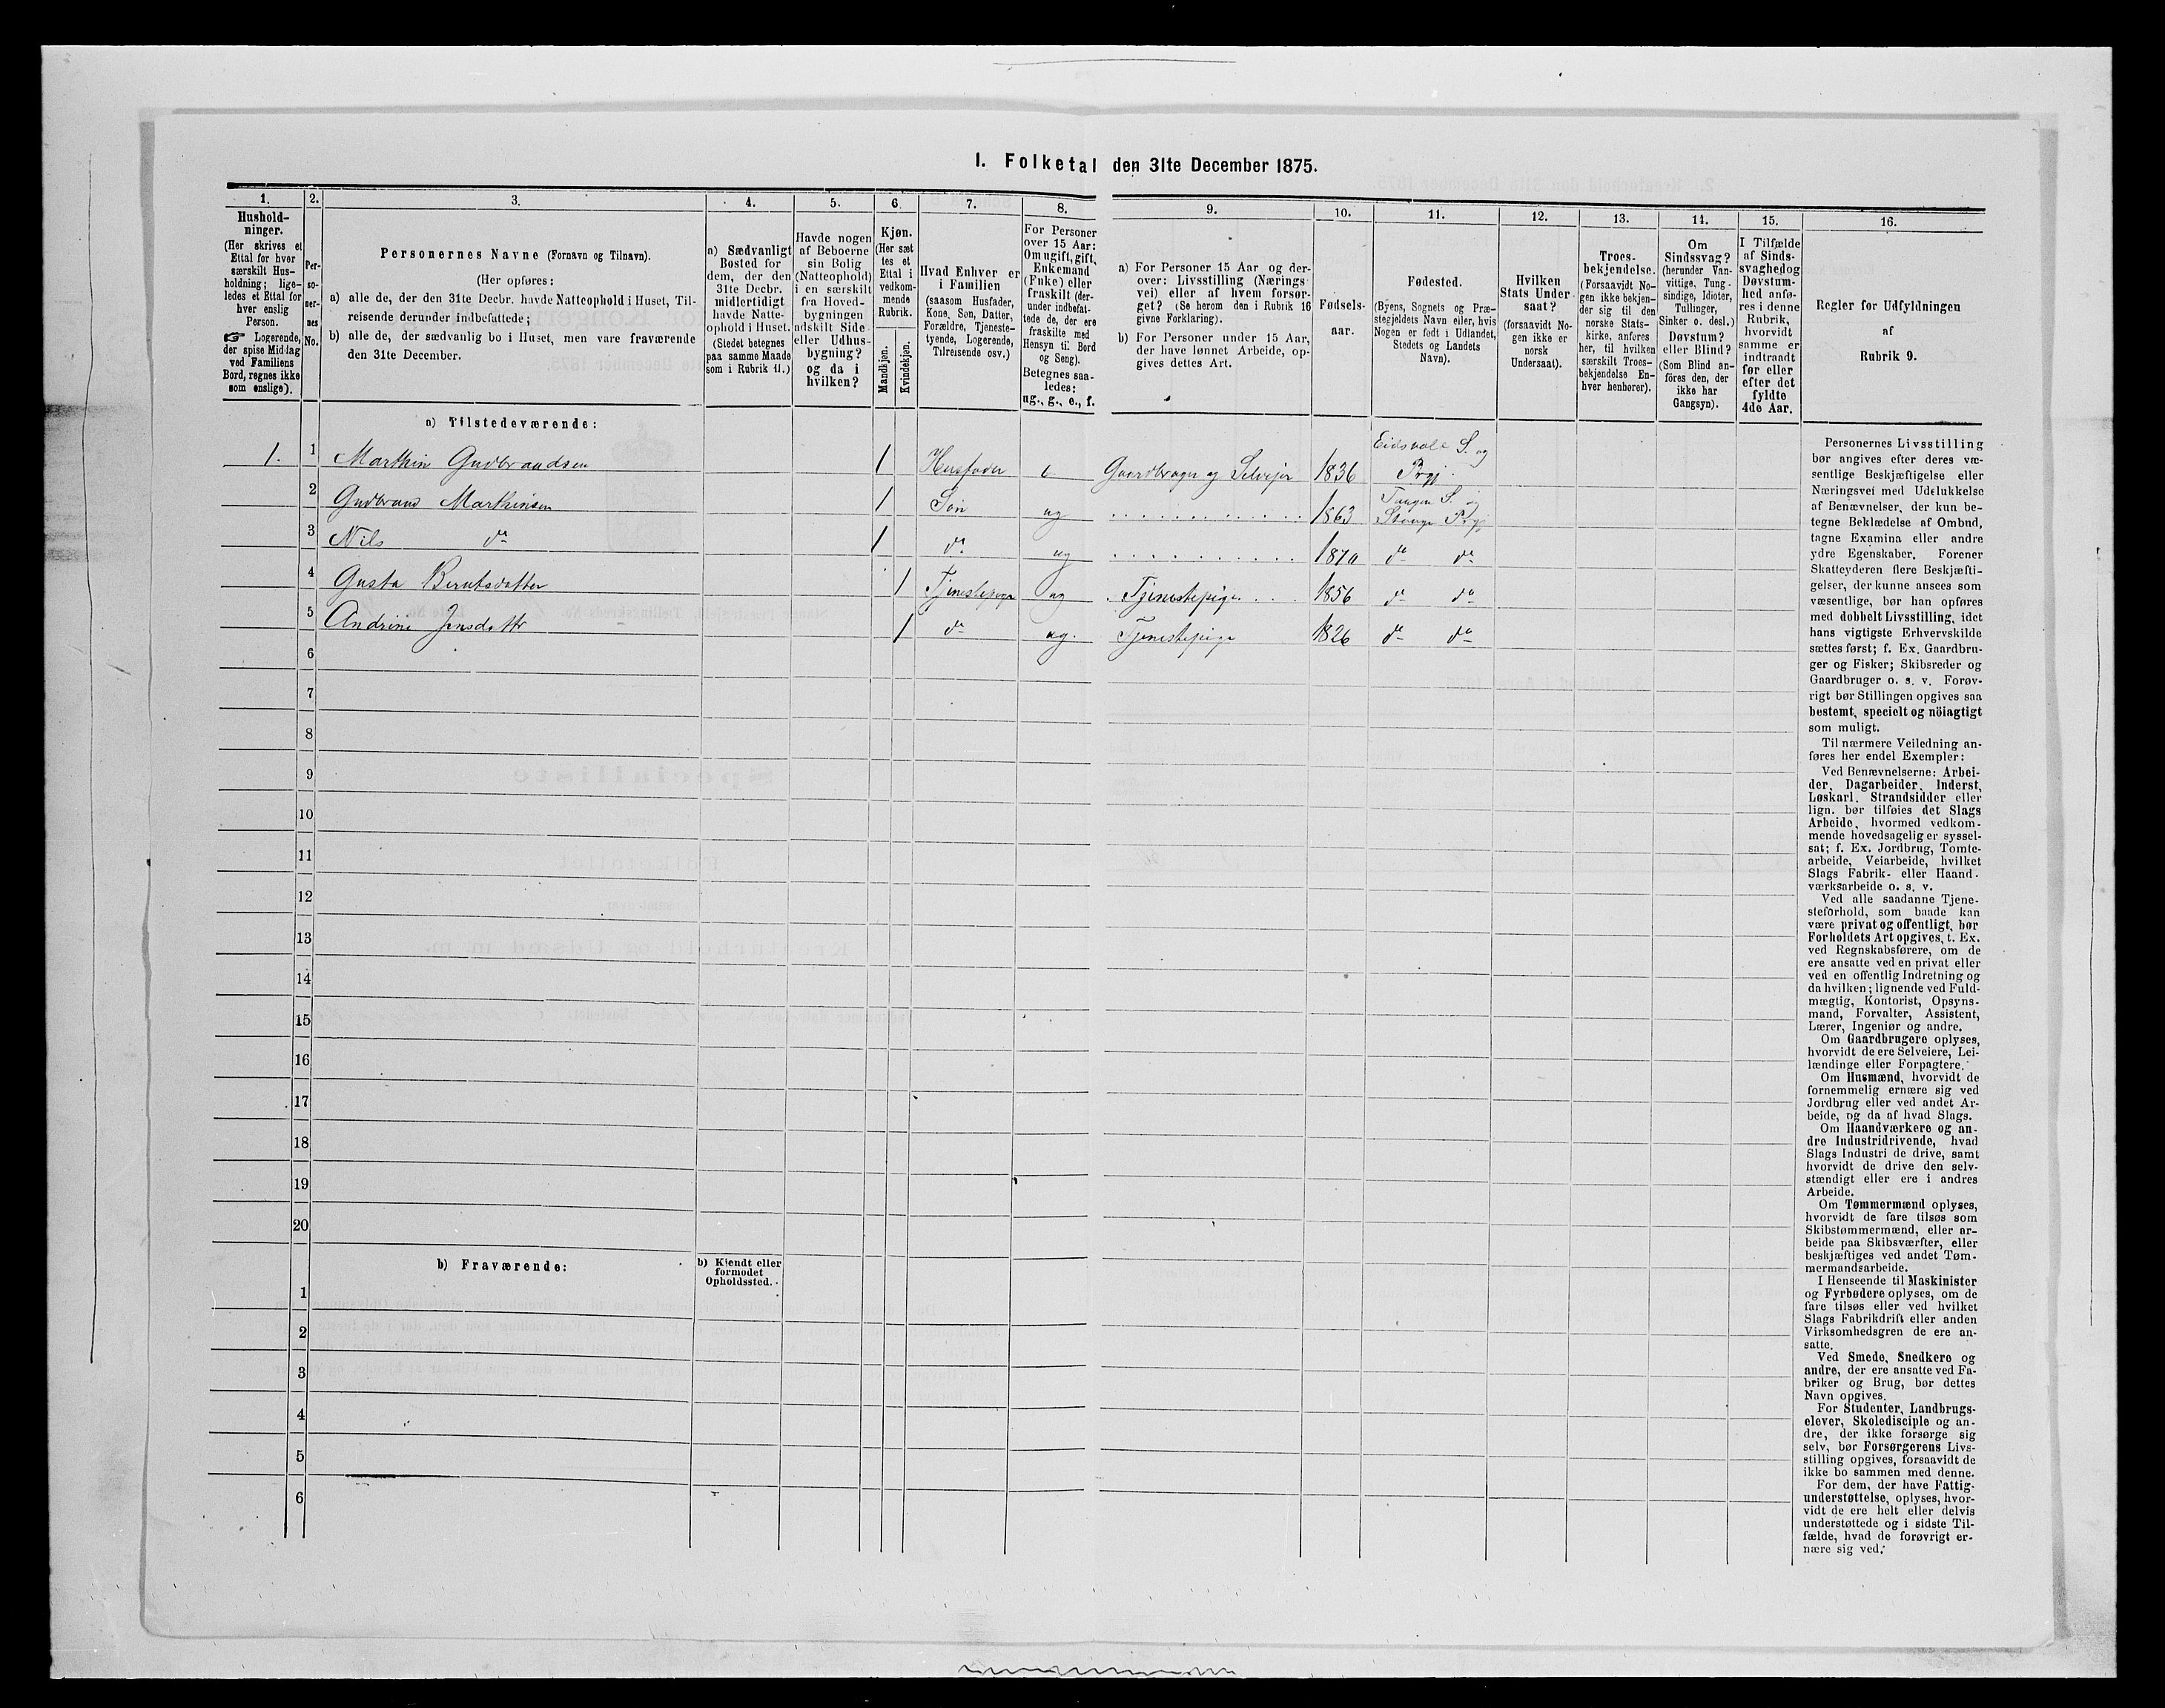 I. Folketal den 31te December 1875.
1.
Hushold-
ninger.
(Her skrives et
Ettal for hver
særskilt Hus-
holdning; lige-
ledes et Ettal for
hver enslig
Person.
☞ Logerende,
der spise Middag
ved Familiens
Bord, regnes ikke
som enslige).
2.
Per-
so-
ner-
nes
No.
3.
Personernes Navne (Fornavn og Tilnavn).
(Her opføres:
a) alle de, der den 31te Decbr. havde Natteophold i Huset, Til-
reisende derunder indbefattede;
b) alle de, der sædvanlig bo i Huset, men vare fraværende
den 31te December.
4.
a) Sædvanligt
Bosted for
dem, der den
31te Decbr.
midlertidigt
havde Natte-
ophold i Huset.
(Stedet betegnes
paa samme Maade
som i Rubrik 11.)
5.
Havde nogen
af Beboerne
sin Bolig
(Natteophold)
i en særskilt
fra Hoved-
bygningen
adskilt Side-
eller Udhus-
bygning?
og da i
hvilken?
6.
Kjøn.
(Her sæt-
tes et
Ettal i
vedkom-
mende
Rubrik.
Mandkjøn.
Kvindekjøn.
7.
Hvad Enhver er
i Familien
(saasom Husfader,
Kone, Søn, Datter,
Forældre, Tjeneste-
tyende, Logerende,
Tilreisende osv.)
8.
For Personer
over 15 Aar:
Om ugift, gift,
Enkemand
(Enke) eller
fraskilt (der-
under indbefat-
tede de, der ere
fraskilte med
Hensyn til Bord
og Seng).
Betegnes saa-
ledes:
ug., g., e., f.
9.
a) For Personer 15 Aar og der-
over: Livsstilling (Nærings-
vei) eller af hvem forsør-
get? (Se herom den i Rubrik 16
givne Forklaring).
b) For Personer under 15 Aar,
der have lønnet Arbeide, op-
gives dettes Art.
10.
Fødsels-
aar.
11.
Fødested.
(Byens, Sognets og Præ-
stegjeldets Navn eller, hvis
Nogen er født i Udlandet,
Stedets og Landets
Navn).
12.
Hvilken
Stats Under-
saat?
(forsaavidt No-
gen ikke er
norsk
Undersaat).
13.
Troes-
bekjendelse.
(Forsaavidt No-
gen ikke bekjen-
der sig til den
norske Stats-
kirke, anføres
her, til hvilken
særskilt Troes-
bekjendelse En-
hver henhører).
14.
Om
Sindssvag?
(herunder Van-
vittige, Tung-
sindige, Idioter,
Tullinger,
Sinker o. desl.)
Døvstum?
eller Blind?
(Som Blind an-
føres den, der
ikke har
Gangsyn).
15.
I Tilfælde
af Sinds-
svaghed og
Døvstum-
hed anfø-
res i denne
Rubrik,
hvorvidt
samme er
indtraadt
før eller
efter det
fyldte
4de Aar.
16.
Regler for Udfyldningen
af
Rubrik 9.
a) Tilstedeværende:
1. 1 Marthin Gudbrandsen 1 Husfader e Gaardbruger og Selvejer 1836 Eidsvold S. og
Prgj.
2 Gudbrand Marthinsen 1 Søn ug 1863 Tangen S. og
Stange Prgj
3 Nils do 1 do ug 1870 do do
4 Gusta Berntsdatter 1 Tjenestepige ug Tjenestepige 1856 do do
5 Andrine Jensdattr 1 do ug. Tjenestepige 1826 do do
6
7
8
9
10
11
12
13
14
15
16
17
18
19
20
b) Fraværende:
b) Kjendt eller
formodet
Opholdssted.
1
2
3
4
5
6
Personernes Livsstilling
bør angives efter deres væ-
sentlige Beskjæftigelse eller
Næringsvei med Udelukkelse
af Benævnelser, der kun be-
tegne Beklædelse af Ombud,
tagne Examina eller andre
ydre Egenskaber. Forener
Skatteyderen flere Beskjæfti-
gelser, der kunne ansees som
væsentlige, bør han opføres
med dobbelt Livsstilling, idet
hans vigtigste Erhvervskilde
sættes først; f. Ex. Gaardbru-
ger og Fisker; Skibsreder og
Gaardbruger o. s. v. Forøv-
rigt bør Stillingen opgives saa
bestemt, specielt og nöiagtigt
som muligt.
Til nærmere Veiledning an-
føres her endel Exempler:
Ved Benævnelserne: Arbei-
der, Dagarbeider, Inderst,
Løskarl, Strandsidder eller
lign. bør tilføies det Slags
Arbeide, hvormed vedkom-
mende hovedsagelig er syssel-
sat; f. Ex. Jordbrug, Tomte-
arbeide, Veiarbeide, hvilket
Slags Fabrik- eller Haand-
værksarbeide o. s. v.
Ved alle saadanne Tjene-
steforhold, som baade kan
være privat og offentligt, bør
Forholdets Art opgives, t. Ex.
ved Regnskabsførere, om de
ere ansatte ved en privat eller
ved en offentlig Indretning og
da hvilken; lignende ved Fuld-
mægtig, Kontorist, Opsyns-
mand, Forvalter, Assistent,
Lærer, Ingeniør og andre.
Om Gaardbrugere oplyses,
hvorvidt de ere Selveiere, Lei-
lændinge eller Forpagtere.
Om Husmænd, hvorvidt de
fornemmelig ernære sig ved
Jordbrug eller ved andet Ar-
beide, og da af hvad Slags.
Om Haandværkere og an-
dre Industridrivende, hvad
Slags Industri de drive, samt
hvorvidt de drive den selv-
stændigt eller ere i andres
Arbeide.
Om Tømmermænd oplyses,
hvorvidt de fare tilsøs som
Skibstømmermænd, eller ar-
beide paa Skibsværfter, eller
beskjæftiges ved andet Tøm-
mermandsarbeide.
I Henseende til Maskinister
og Fyrbødere oplyses, om de
fare tilsøs eller ved hvilket
Slags Fabrikdrift eller anden
Virksomhedsgren de ere an-
satte.
Ved Smede, Snedkere og
andre, der ere ansatte ved Fa-
briker og Brug, bør dettes
Navn opgives.
For Studenter, Landbrugs-
elever, Skoledisciple og an-
dre, der ikke forsørge sig
selv, bør Forsørgerens Livs-
stilling opgives, forsaavidt de
ikke bo sammen med denne.
For dem, der have Fattig-
understøttelse, oplyses, hvor-
vidt de ere helt eller delvis
understøttede og i sidste Til-
fælde, hvad de forøvrigt er-
nære sig ved.